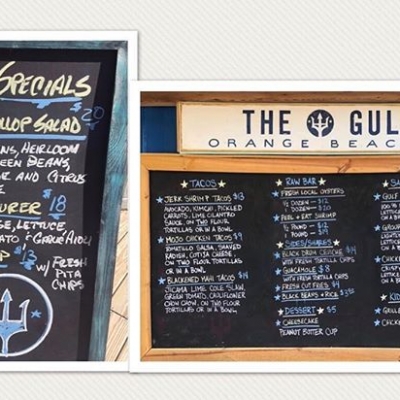 SPECIALS
$20
LLOP SALAD
NS, HEIRLOOM
EEN BEANS,
E AND CITRUS
URER $18
SE, LETTUCE
ATO & GARLIC AIOLI
P $13 w/ FRESH
PITA
CHIPS
THE GUL
ORANGE BEAC
TACOS
JERK SHRIMP TACOS $13
AVOCADO, KIMCHI, PICKLED
CARROTS, LIME CILANTRO
SAUCE, ON TWO FLOUR
TORTILLAS OR IN A BOWL
MOJO CHICKEN TACOS $9
TOMATILLO SALSA, SHAVED
RADISH, COTIJA CHEESE,
ON TWO FLOUR TORTILLAS
OR IN A BOWL
BLACKENED MAHI TACOS $14
JICAMA LIME COLE SLAW,
GREEN TOMATO, CAULIFLOWER
CHOW CHOW, ON TWO FLOUR
TORTILLAS OR IN A BOWL
RAW BAR
FRESH LOCAL OYSTERS
1/2 DOZEN - $12
DOZEN - $20
PEEL & EAT SHRIMP
1/2 POUND - $12
1 POUND -
SIDES/SHARES
BLACK DRUM CEVICHE $14
WITH FRESH TORTILLA CHIPS
GUACAMOLE $8
WITH FRESH TORTILLA CHIPS
FRESH CUT FRIES $4
BLACK BEANS & RICE $3.50
DESSERT $5
CHEESECAKE
PEANUT BUTTER CUP
SA
GULF
GROUP
CHICK
KID
GRIL
CHICKE